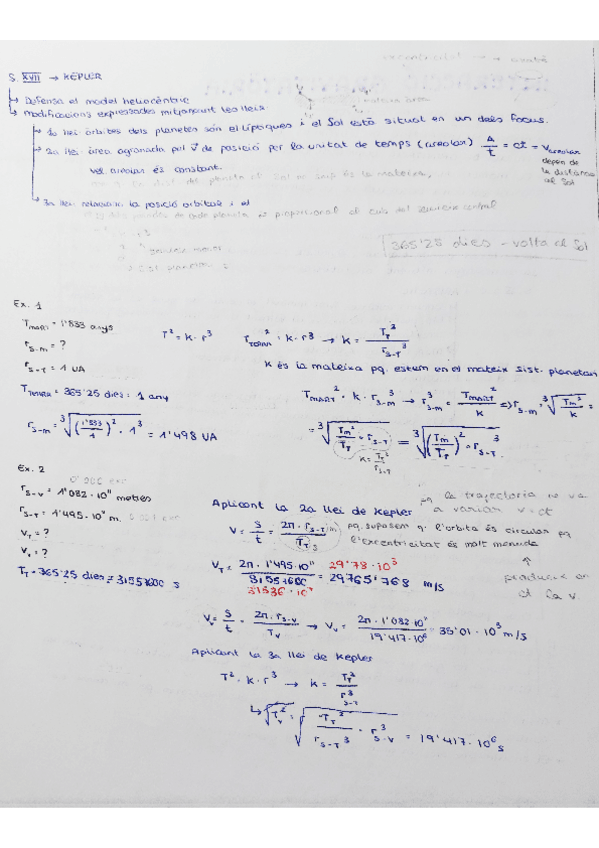 S. XVII → KEPLER
Defensa el model heliocèntric
modificacions expressades mitjançant les lleis.
1a llei: òrbites dels planetes són el·líptiques i el Sol està situat en un dels focus.
2a llei: àrea agranada pel V de posició per la unitat de temps (areolar) A/t = ct = Vareolar
depèn de la distància al Sol
vel. areolar és constant.
3a llei: relacionar la posició orbital i el
365'25 dies - volta al Sol
Ex. 1
TMART = 1'833 anys
rS-M = ?
rS-T = 1 UA
TTERRA = 365'25 dies = 1 any
T² = K · r³
TTERRA² = K · r³ → K =
K és la mateixa pq. estem en el mateix sist. planetari
TMART² = K · rS-M³ → rS-M³ = TMART²/K => rS-M = ³√(TM²/K) =
rS-M = ³√((1'833/1)² · 1³) = 1'498 UA
= ³√(TM²/TT² · rS-T³) = ³√((TM/TT)² · rS-T³)
K = TT²/rS-T³
Ex. 2
rS-V = 1'082 · 10¹¹ metres
rS-T = 1'495 · 10¹¹ m.
VT = ?
VV = ?
TT = 365'25 dies = 31557600 s
Aplicant la 2a llei de Kepler
pq la trajectoria no va a variar v = ct
V = S/t = 2π · rS-T m / TT s
pq. suposem q. l'orbita és circular pq l'excentricitat és molt menuda
VT = 2π · 1'495 · 10¹¹ / 31557600 = 29765'768 m/s
29'78 · 10³
31536 · 10³
VV = S/t = 2π · rS-V / TV → VV = 2π · 1'082 · 10¹¹ / 19'417 · 10⁶ = 35'01 · 10³ m/s
Aplicant la 3a llei de Kepler
T² = K · r³ → K = TT²/rS-T³
√TV² = √(TT²/rS-T³ · rS-V³) = 19'417 · 10⁶ s